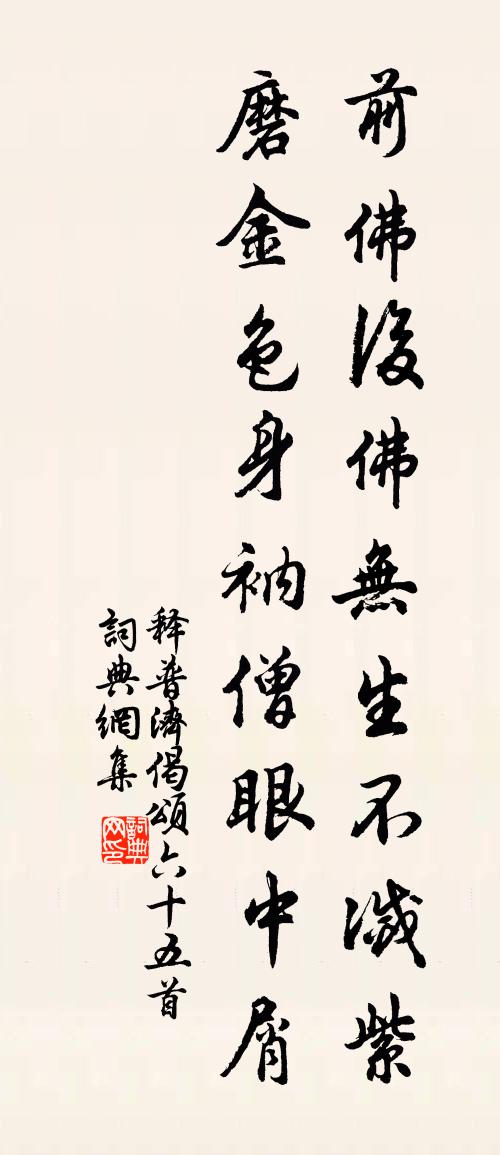 前佛後佛無生不滅紫
磨金色身衲僧眼中屑
释普濟偈頌六十五首
詞典網集
詞典網印